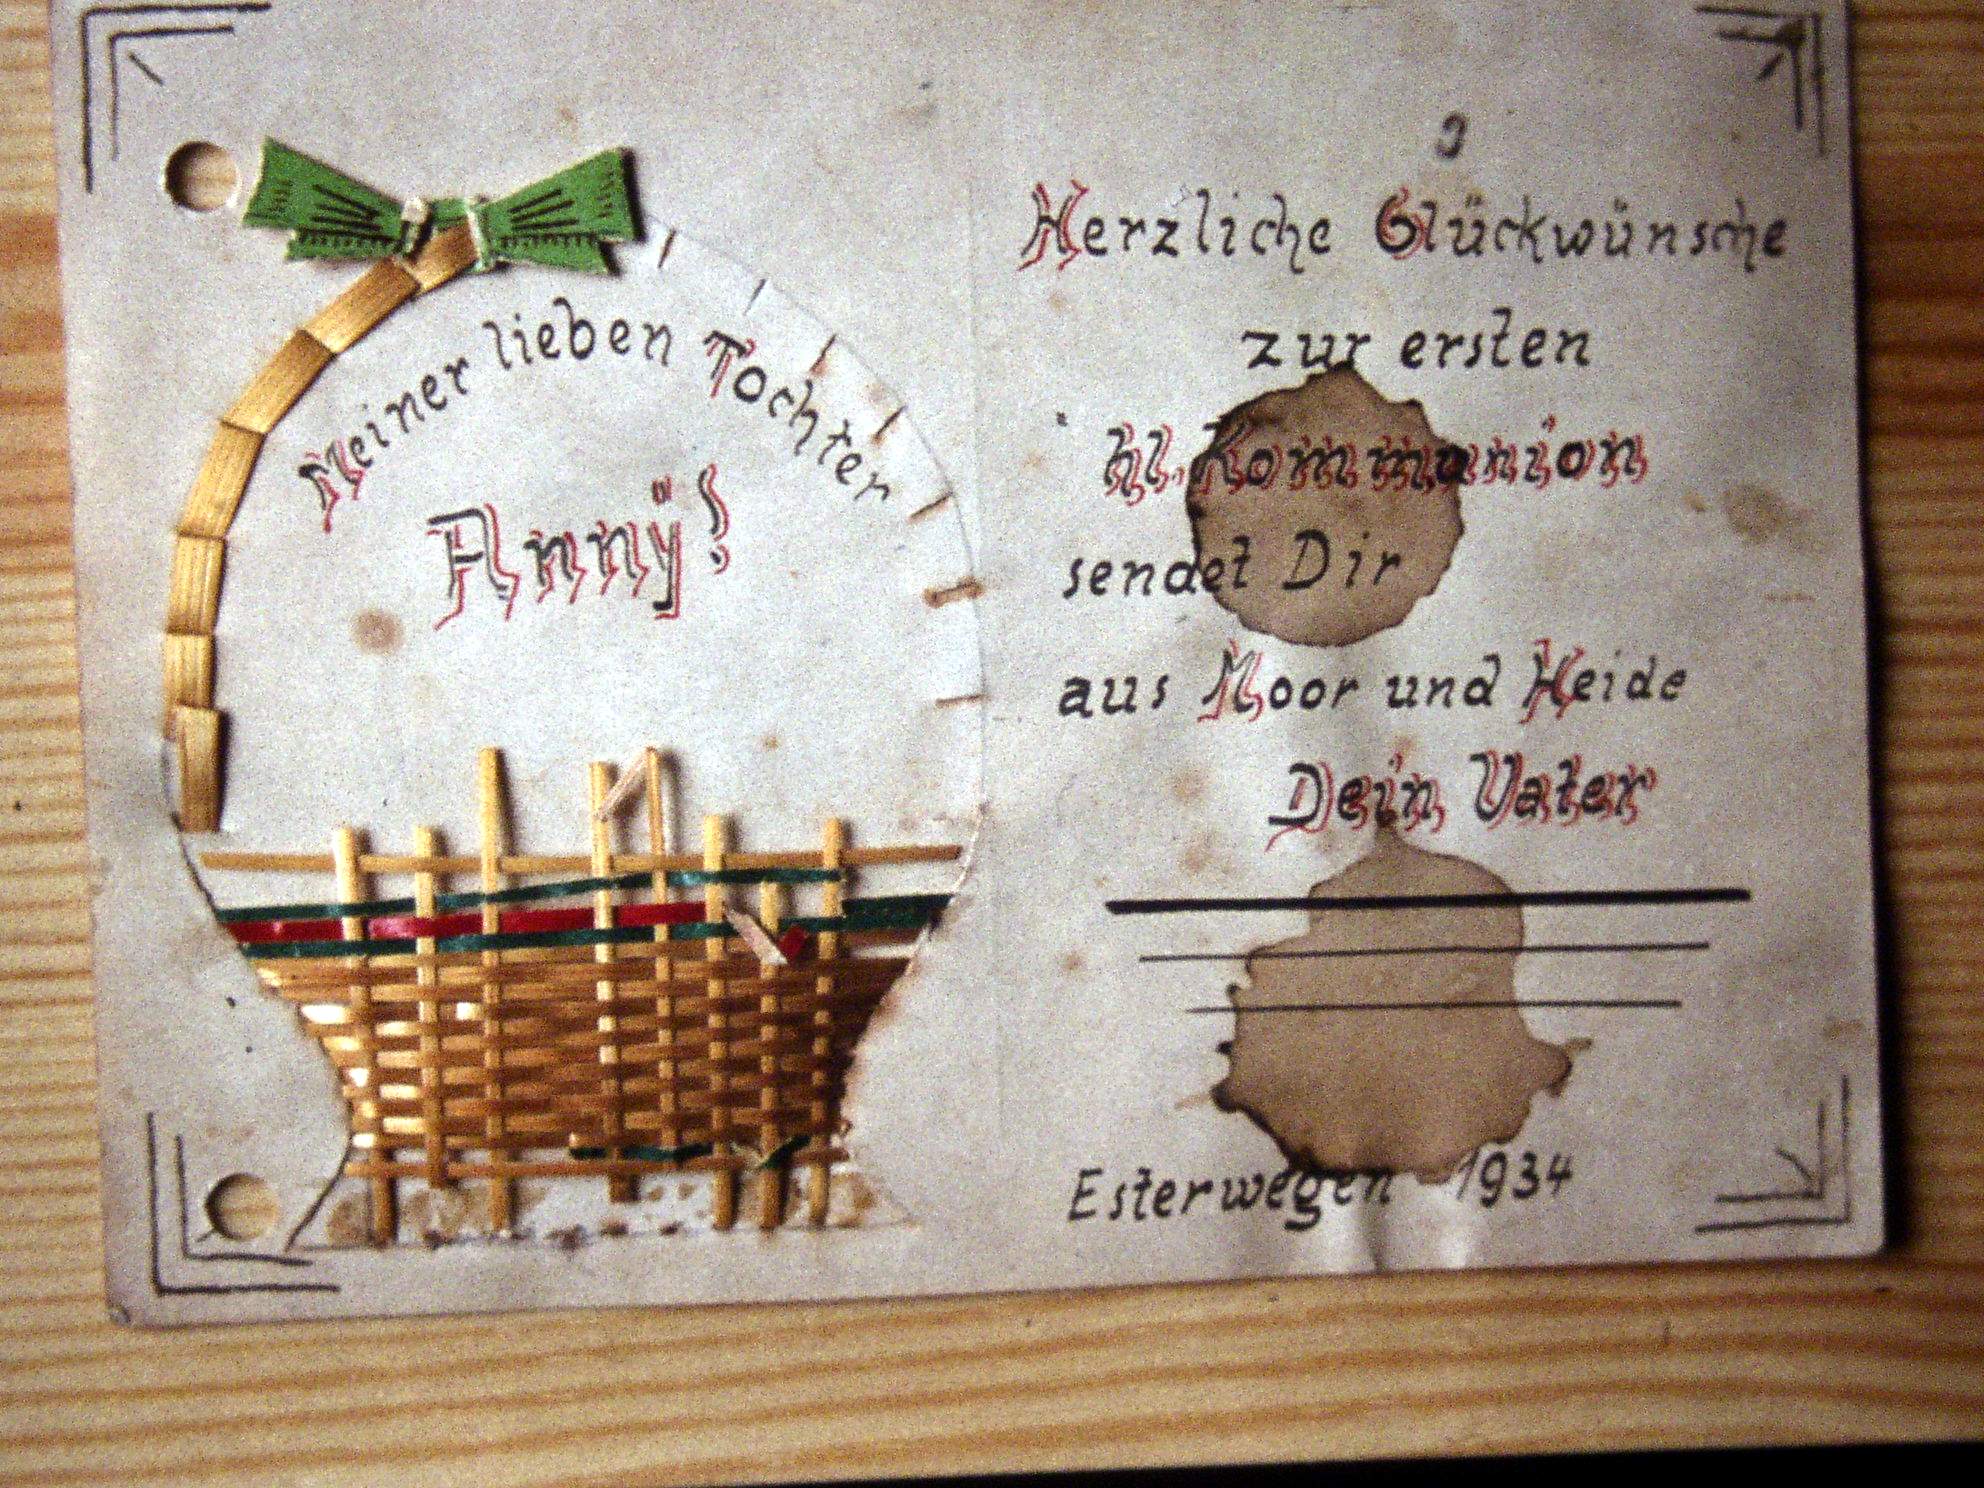 Meiner lieben Tochter
Annÿ!
Herzliche Glückwünsche
zur ersten
hl. Kommunion
sendet Dir
aus Moor und Heide
Dein Vater
Esterwegen 1934